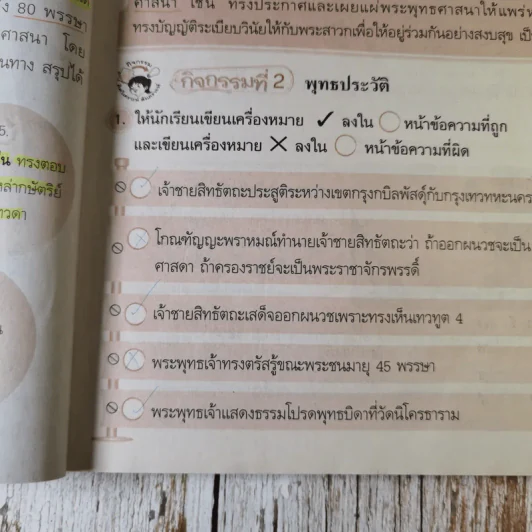 80 พรรษา
ศาสนา โดย
นทาง สรุปได้
5.
ทรงตอบ
หล่ากษัตริย์
ทวดา
ศาสนา เช่น ทรงประกาศและเผยแผ่พระพุทธศาสนาให้แพร่
ทรงบัญญัติระเบียบวินัยให้กับพระสาวกเพื่อให้อยู่ร่วมกันอย่างสงบสุข
กิจกรรมที่ 2 พุทธประวัติ
1. ให้นักเรียนเขียนเครื่องหมาย ✓ ลงใน ◯ หน้าข้อความที่ถูก
และเขียนเครื่องหมาย ✕ ลงใน ◯ หน้าข้อความที่ผิด
เจ้าชายสิทธัตถะประสูติระหว่างเขตกรุงกบิลพัสดุ์กับกรุงเทวทหะนคร
โกณฑัญญะพราหมณ์ทำนายเจ้าชายสิทธัตถะว่า ถ้าออกผนวชจะเป็น
ศาสดา ถ้าครองราชย์จะเป็นพระราชาจักรพรรดิ์
เจ้าชายสิทธัตถะเสด็จออกผนวชเพราะทรงเห็นเทวทูต 4
พระพุทธเจ้าทรงตรัสรู้ขณะพระชนมายุ 45 พรรษา
พระพุทธเจ้าแสดงธรรมโปรดพุทธบิดาที่วัดนิโครธาราม